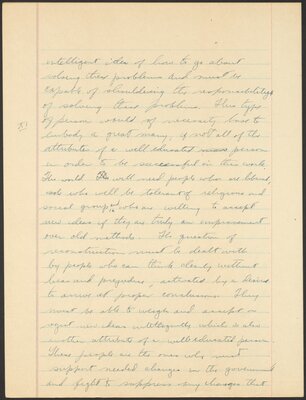 intelligent idea of how to go about
solving these problems and must be
capable of shouldering the responsibility
of solving these problems. This type
of person would of necessity have to
embody a great many, if not all of the
attributes of a well educated person
in order to be successful in this work.
The world will need people who are liberal,
who will be tolerant of religious and
social groups and who are willing to accept
new ideas if they are truly an improvement
over old methods. The question of
reconstruction must be dealt with
by people who can think clearly without
bias and prejudice, activated by a desire
to arrive at proper conclusions. They
must be able to weigh and accept or
reject new ideas intelligently which is also
another attribute of a well educated person.
These people are the ones who must
support needed changes in the government
and fight to suppress any changes that